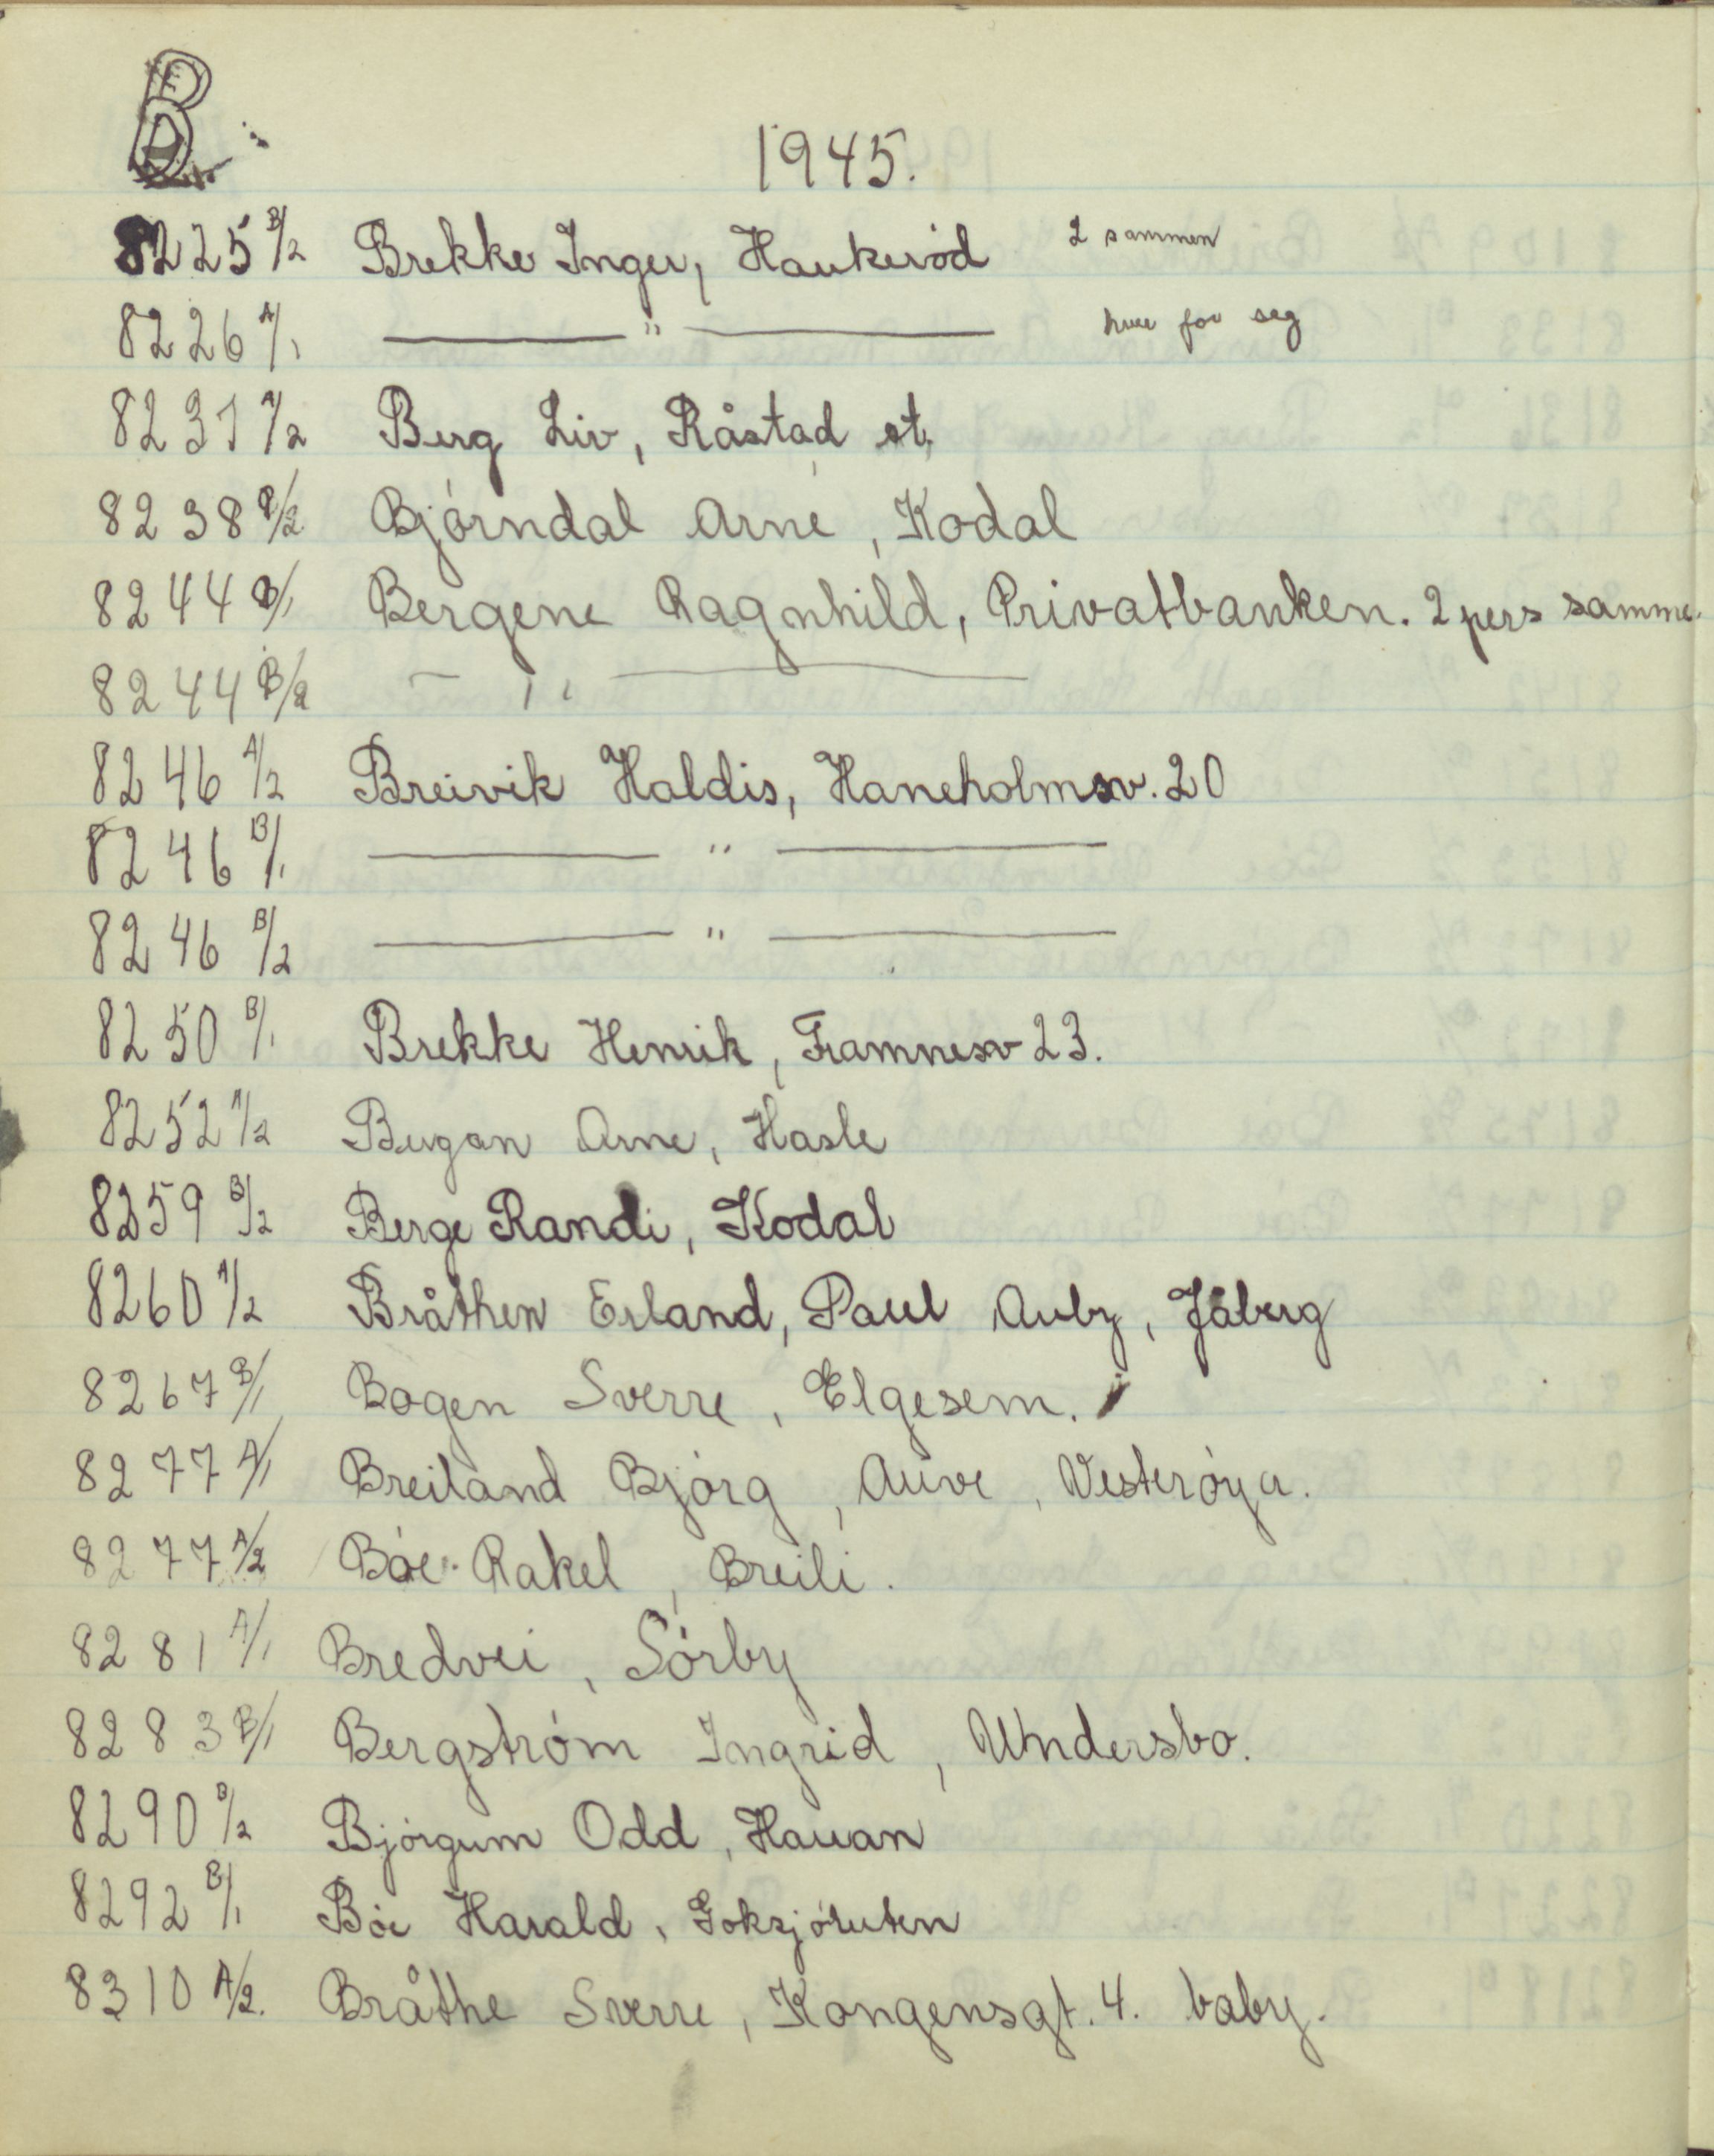 B
1945.
8225 B/2 Brekke Inger, Haukeród 2 sammen
8226 A/1 ——— " ——— hver for seg
8231 A/2 Berg Liv, Råstad st.
8238 B/2 Bjórndal Arne, Kodal
8244 B/1 Bergene Ragnhild, Privatbanken. 2 pers samme.
8244 B/2 — " ———
8246 A/2 Breivik Haldis, Haneholmsv. 20
8246 B/1 ——— " ———
8246 B/2 ——— " ———
8250 B/1 Brekke Henrik, Framnesv 23.
8252 A/2 Bergan Arne, Hasle
8259 B/2 Berge Randi, Kodal
8260 A/2 Bråthen Erland, Paul Auby, Jåberg
8267 B/1 Bogen Sverre, Elgesem.
8277 A/1 Breiland Bjórg, Auve, Vesteróya.
8277 A/2 Bóe Rakel, Breili.
8281 A/1 Bredvei, Sórby
8283 B/1 Bergstróm Ingrid, Undersbo.
8290 B/2 Bjórgum Odd, Hauan
8292 B/1 Bóe Harald, Goksjóruten
8310 A/2. Bråthe Sverre, Kongensgt. 4. baby.